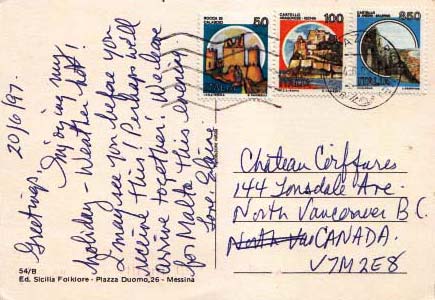 20/6/97.
Greetings,
Injoying my
holiday - Weather hot!
I may see you before you
receive this! Perhaps will
arrive together! We leave
for Malta this evening
Love Elaine
ROCCA DI
CALASCIO
50
ITALIA
CASTELLO
ARAGONESE - ISCHIA
100
ITALIA
850
ITALIA
Château Coiffures
144 Lonsdale Ave.
North Vancouver B.C.
North Van CANADA.
V7M2E8
54/B
Ed. Sicilia Folklore - Piazza Duomo,26 - Messina